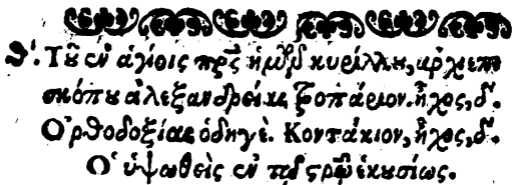 θ´. Τοῦ ἐν ἁγίοις πρς ἡμῶν κυρίλλου, ἀρχιεπι
σκόπου ἀλεξανδρείας Τροπάριον. ἦχος, δ´.
Ὀρθοδοξίας ὁδηγὲ. Κοντάκιον, ἦχος, δ´.
Ὁ ὑψωθεὶς ἐν τῷ σταυρῷ ἑκουσίως.